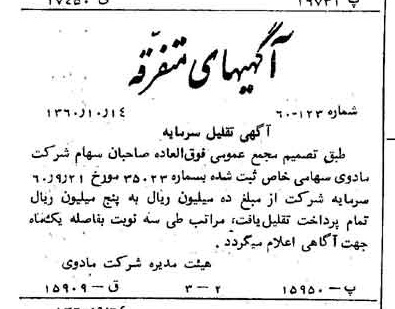 آگهیهای متفرقه
شماره ۱۲۳-۶۰ ۱۳۶۰/۱۰/۱۴
آگهی تقلیل سرمایه
طبق تصمیم مجمع عمومی فوق‌العاده صاحبان سهام شرکت
مادوی سهامی خاص ثبت شده بسماره ۳۵۰۲۳ مورخ ۶۰/۹/۲۱
سرمایه شرکت از مبلغ ده میلیون ریال به پنج میلیون ریال
تمام پرداخت تقلیل‌یافت، مراتب طی سه نوبت بفاصله یک‌ماه
جهت آگاهی اعلام میگردد.
هیئت مدیره شرکت مادوی
پ – ۱۵۹۵۰ ۲ – ۳ ق – ۱۵۹۰۹